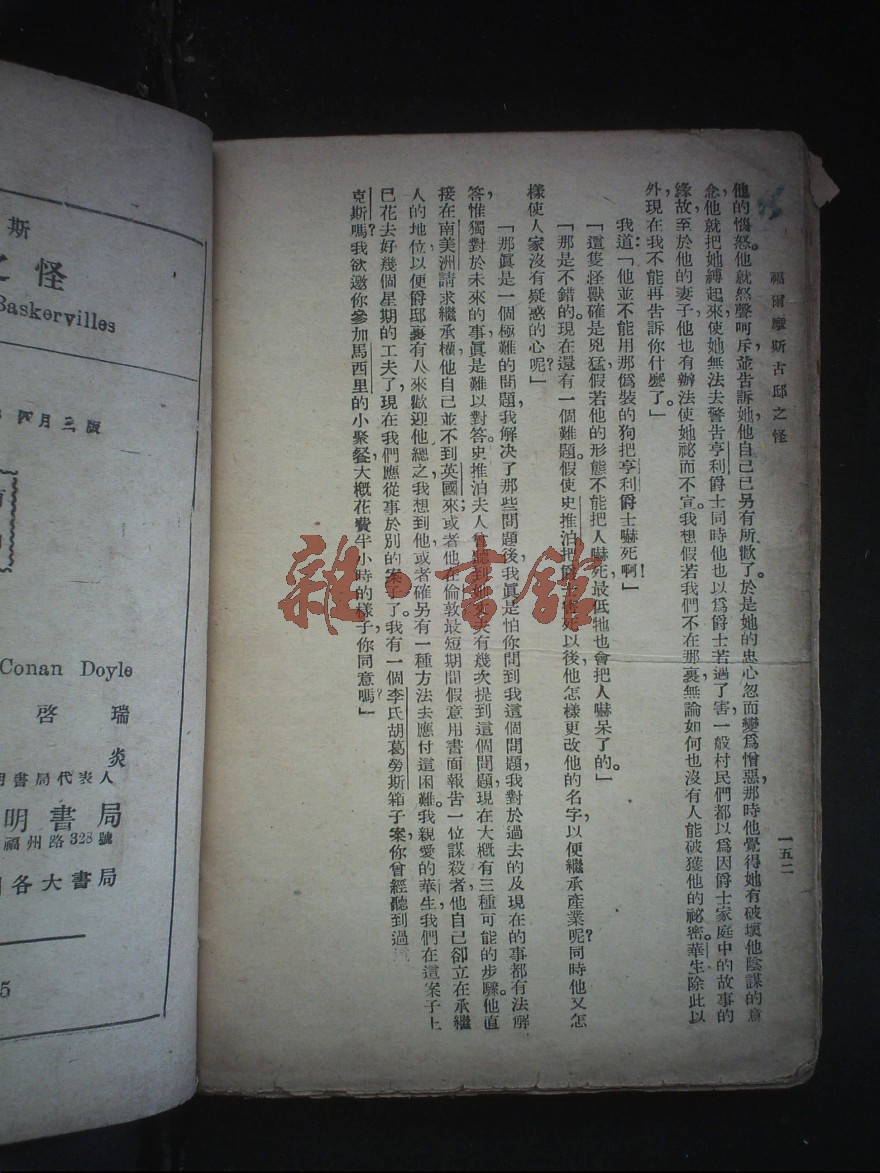 福爾摩斯古邸之怪
一五二
他的惱怒。他就怒聲呵斥,並告訴她,他自己已另有所歡了。於是她的忠心忽而變爲憎惡,那時他覺得她有破壞他陰謀的意
念,他就把她縛起來,使她無法去警告亨利爵士,同時他也以爲爵士若遇了害,一般村民們都以爲因爵士家庭中的故事的
緣故,至於他的妻子,他也有辦法使她祕而不宣。我想假若我們不在那裏,無論如何也沒有人能破獲他的祕密。華生除此以
外,現在我不能再告訴你什麼了。」
我道:「他並不能用那僞裝的狗把亨利爵士嚇死啊!」
「這隻怪獸確是兇猛,假若他的形態不能把人嚇死,最低牠也會把人嚇呆了的。」
「那是不錯的。現在還有一個難題。假使史推泊把爵士害死以後,他怎樣更改他的名字,以便繼承產業呢?同時他又怎
樣使人家沒有疑惑的心呢?」
「那眞是一個極難的問題,我解決了那些問題後,我眞是怕你問到我這個問題,我對於過去的及現在的事都有法解
答,惟獨對於未來的事,眞是難以對答。史推泊夫人曾聽到她丈夫有幾次提到這個問題,現在大概有三種可能的步驟。他直
接在南美洲請求繼承權,他自己並不到英國來;或者他在倫敦最短期間假意用書面報告一位謀殺者,他自己卻立在承繼
人的地位,以便爵邸裏有人來歡迎他,總之,我想到他,或者確另有一種方法去應付這困難。我親愛的華生,我們在這案子上
已花去好幾個星期的工夫了,現在我們應從事於別的案子了。我有一個李氏胡葛勞斯箱子案,你曾經聽到過
克斯嗎?我欲邀你參加馬西里的小聚餐,大概花費半小時的樣子,你同意嗎?」
雜·書館
斯
之怪
Baskervilles
四月三版
Conan Doyle
啓瑞
炎
明書局代表人
明書局
福州路328號
各大書局
5